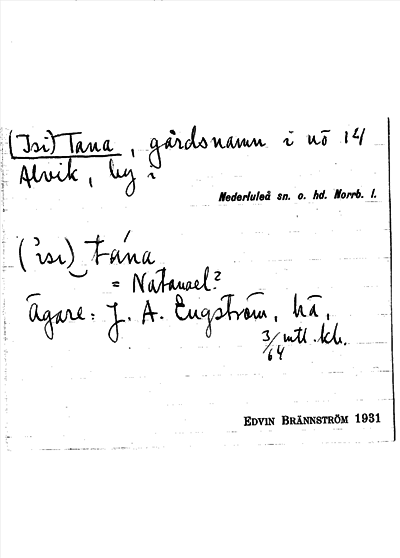 (Isi) Tana, gårdsnamn i nō 14
Alvik, by i
Nederluleå sn. o. hd. Norrb. l.
('isi)‿tána
= Natanael?
Ägare: J. A. Engström, hā,
3/64 mtl. kh.
EDVIN BRÄNNSTRÖM 1931